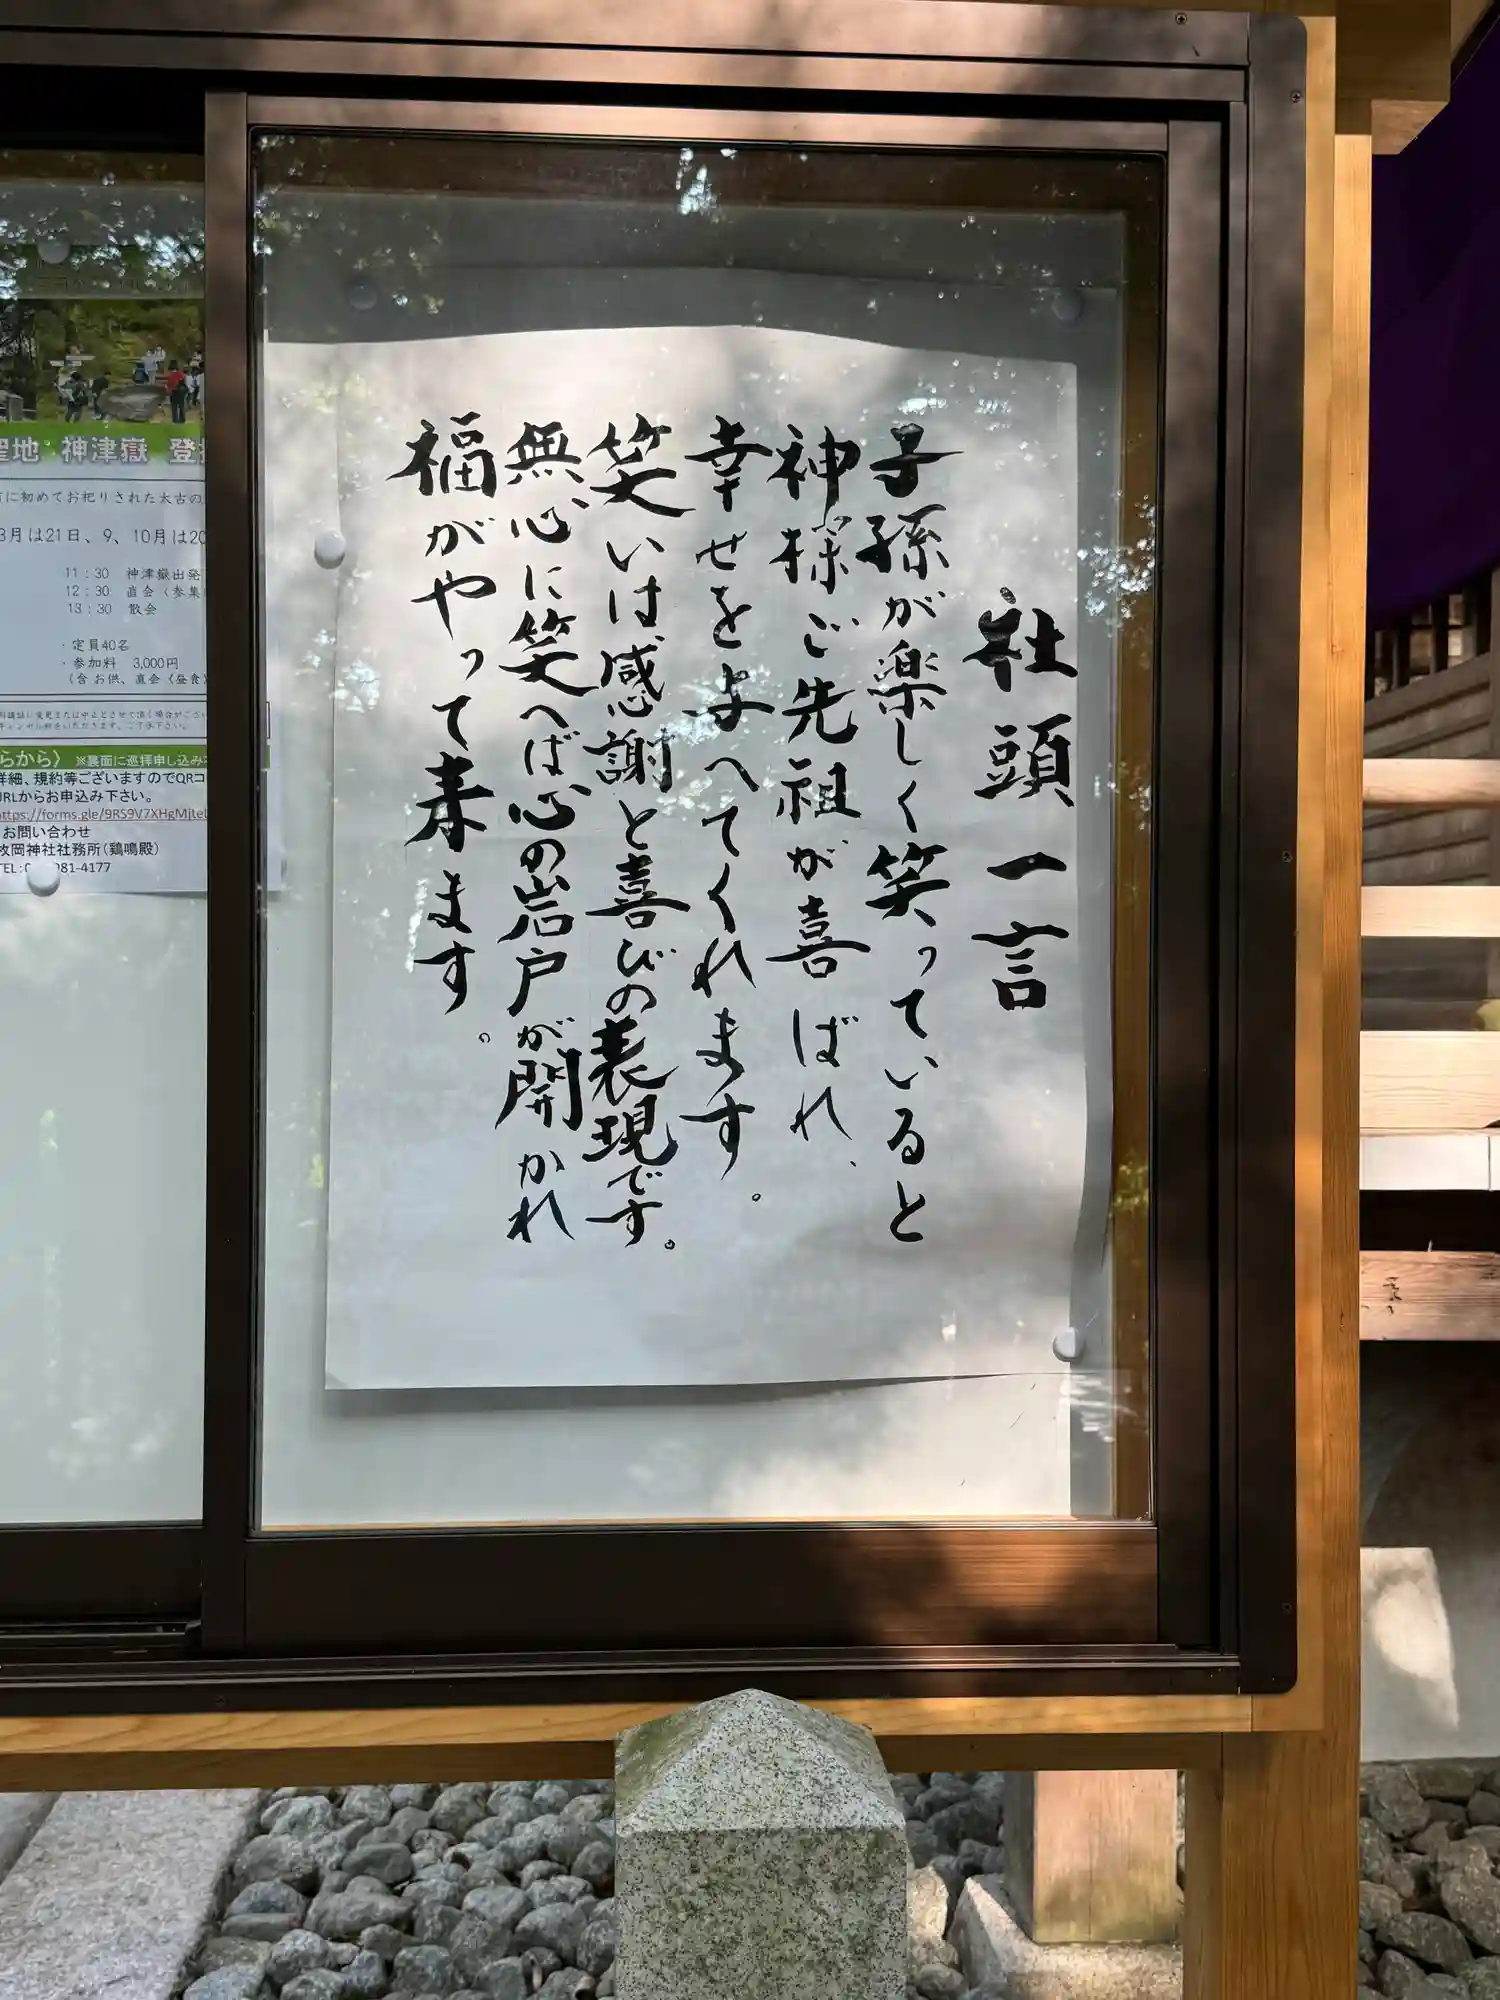 社頭一言
子孫が楽しく笑っていると
神様ご先祖が喜ばれ、
幸せをよべてくれます。
笑いは感謝と喜びの表現です。
無心に笑へば心の岩戸が開かれ
福がやって来ます。
地 神津嶽 登
に初めてお祀りされた太古の
3月は21日、9、10月は20
11：30 神津嶽出発
12：30 直会（参集
13：30 散会
・定員40名
・参加料 3,000円
（含 お供、直会（昼食）
らから〉 ※裏面に巡拝申し込み
詳細、規約等ございますのでQRコ
URLからお申込み下さい。
https://forms.gle/9RS9V7XHgMjte
お問い合わせ
枚岡神社社務所（鶏鳴殿）
TEL:0 981-4177